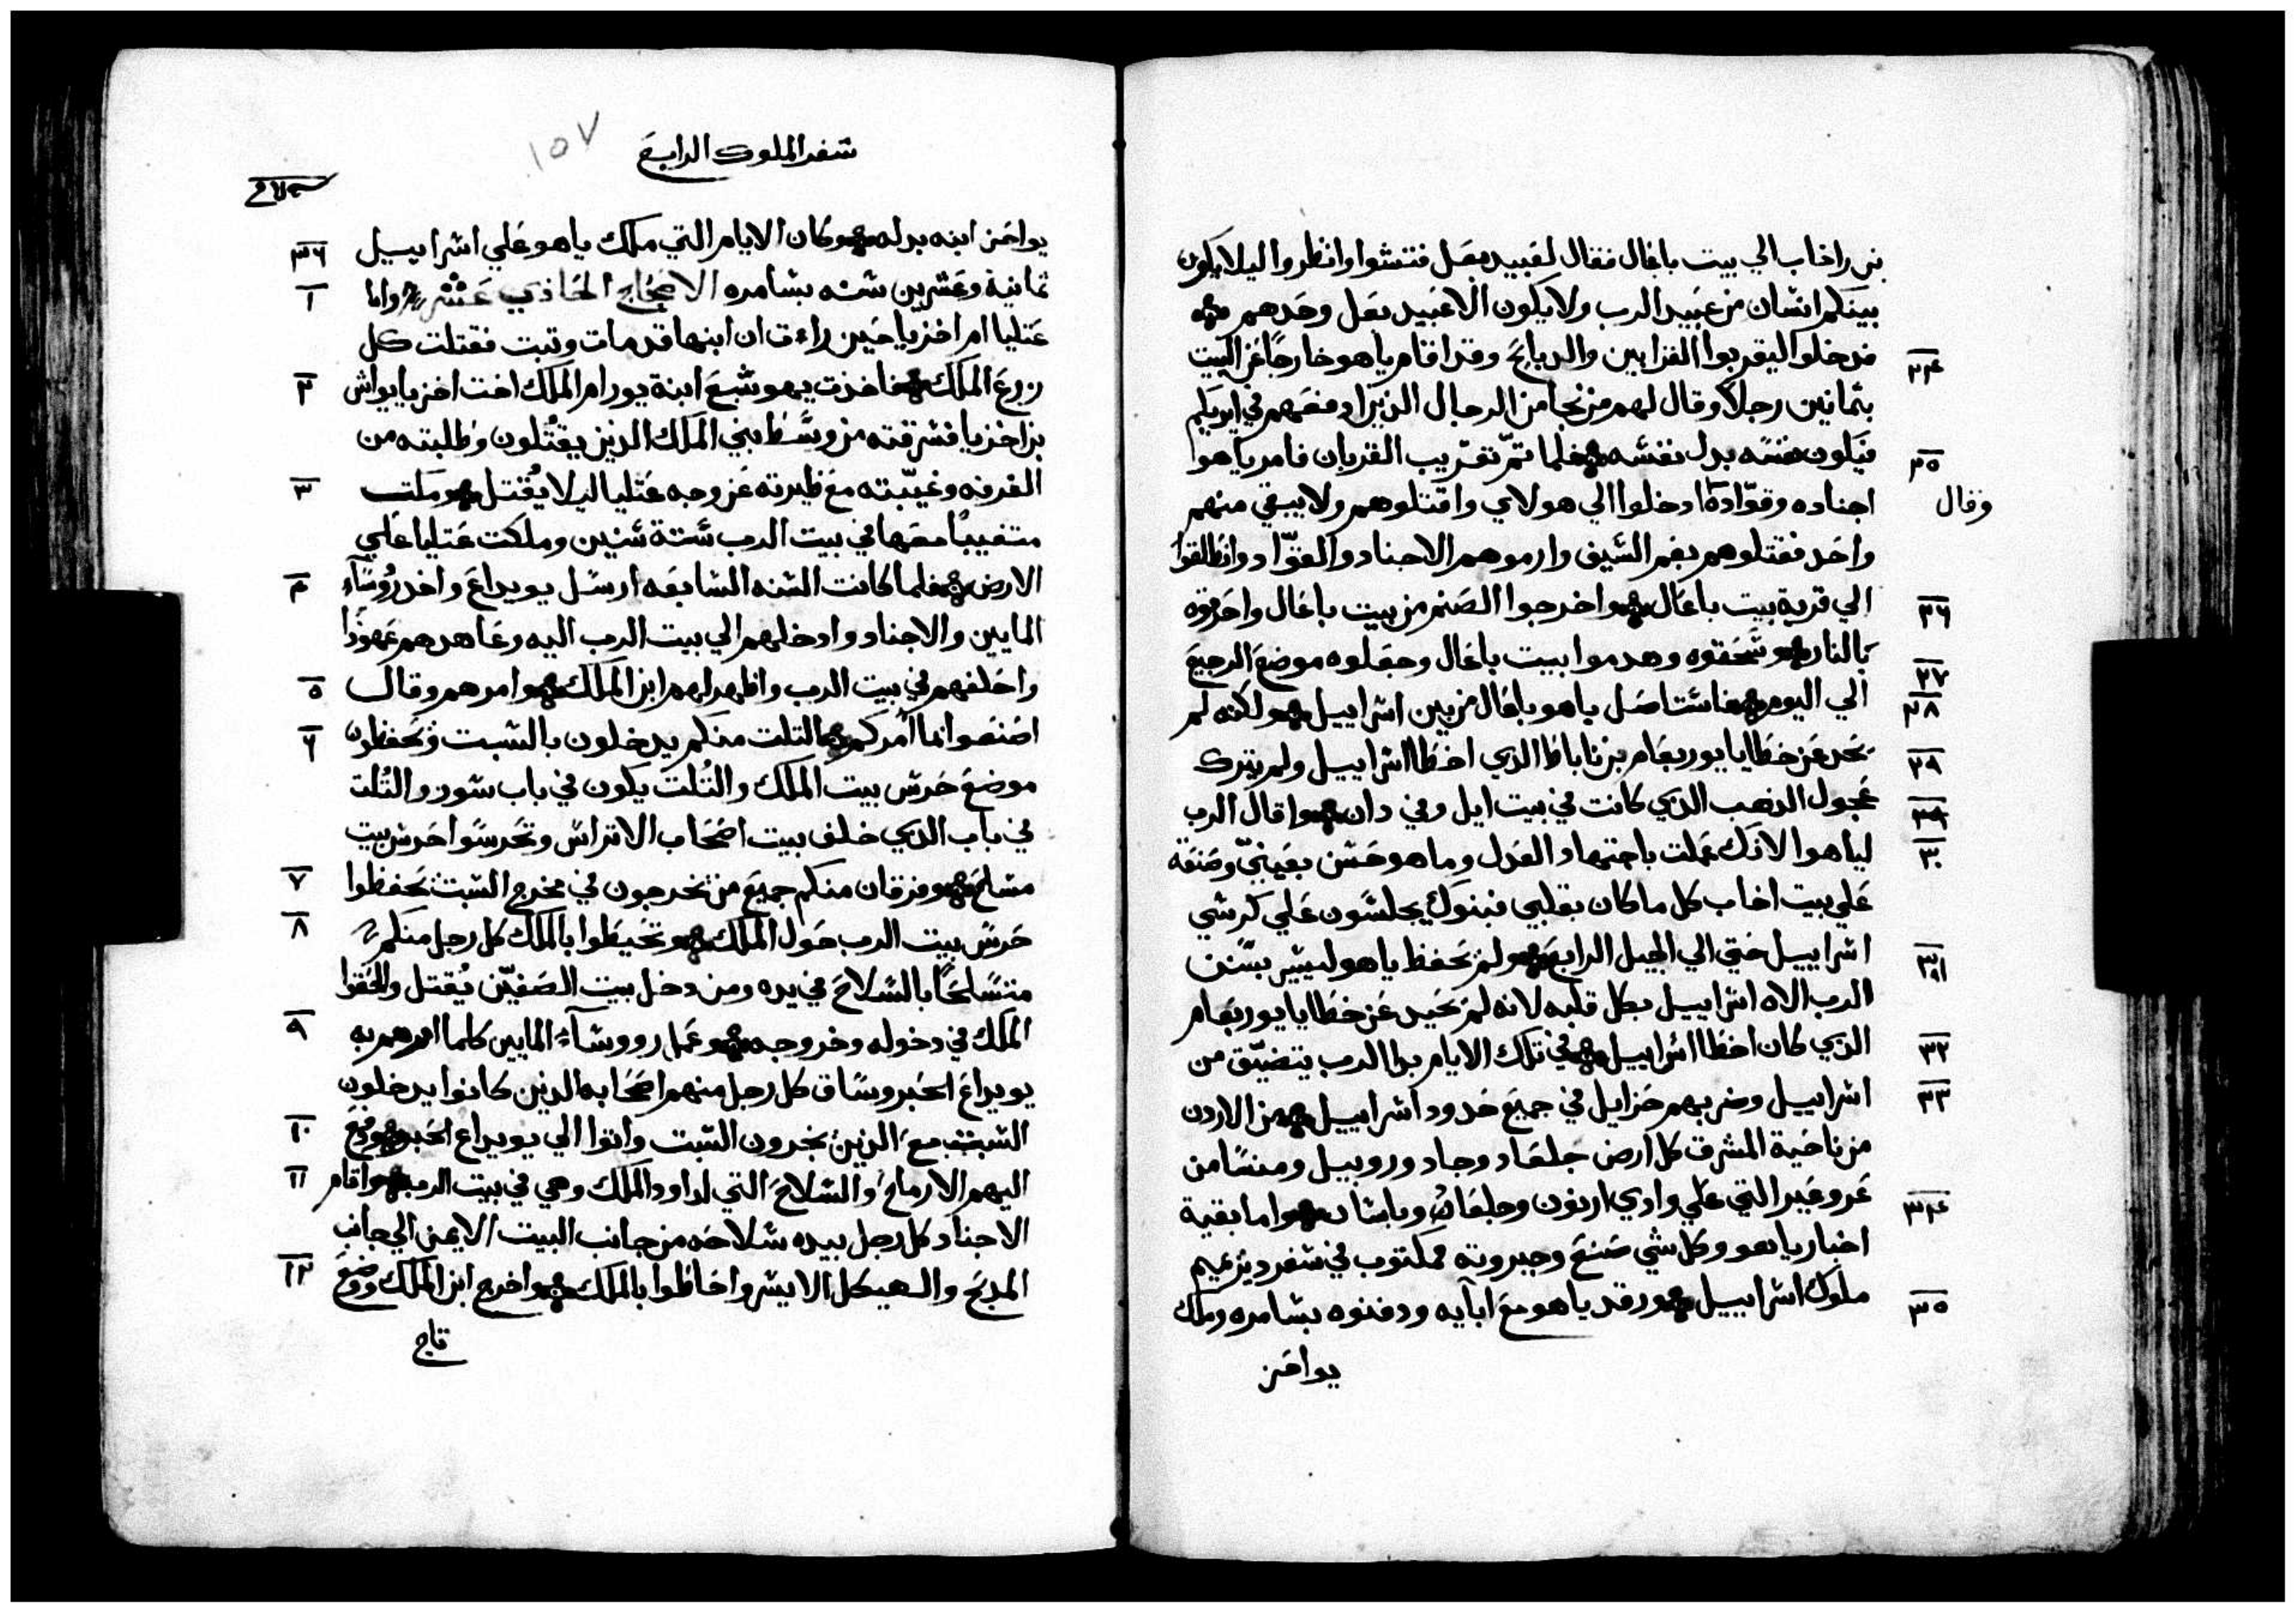 بن راخاب الي بيت باعال فقال لعبيد بعل فتشوا وانظروا ليلا يكون
بينكم انسان من عبيد الرب ولا يكون الا عبيد بعل وحدهم
٢٤ فدخلوا ليقربوا القرابين والدبايح وقد اقام ياهو خارجًا عن البيت
بثمانين رجلاً وقال لهم من نجا من الرجال الذين ادفعهم في ايديكم
٢٥ فيكون نفسه بدل نفسه فلما تمّ تقريب القربان فامر ياهوا
وقال
اجناده وقوّاده ادخلوا الي هولاي واقتلوهم ولا يبقي منهم
واحد فقتلوهم بفم السيف وارموهم الاجناد والقوّاد وانطلقوا
٢٦ الي قرية بيت باعال واخرجوا الصنم من بيت باعال واحرقوه
٢٧ بالنار وسحقوه وهدموا بيت باعال وجعلوه موضع الرجيع
٢٨ الي اليوم فاستاصل ياهو باعال من بين اسراييل ولكنه لم
٢٩ يحد عن خطايا يوربعام بن ناباط الذي اخطا اسراييل ولم يترك
عجول الذهب الذي كانت في بيت ايل وفي دان وقال الرب
٣٠ لياهوا لانك عملت باجتهاد العدل وما هو حسن بعينيّ وصنعته
علي بيت اخاب كل ما كان بقلبي فبنوك يجلسون علي كرسي
٣١ اسراييل حتي الي الجيل الرابع ولم يحفظ ياهو ليسير بسنن
الرب الاه اسراييل بكل قلبه لانه لم يحيد عن خطايا يوربعام
٣٢ الذي كان اخطا اسراييل في تلك الايام بدا الرب يتضيّق من
٣٣ اسراييل وضربهم حزايل في جميع حدود اسراييل من الاردن
من ناحية المشرق كل ارض جلعاد وجاد وروبيل ومنسا من
عروعير التي علي وادي ارنون وجلعاد وباشان
٣٤ واما بقية
اخبار ياهو وكل شي صنع وجبروته مكتوب في سفر دبرنميم
٣٥ ملوك اسراييل ورقد ياهو مع ابآيه ودفنوه بسامره وملك
يواحز
سفر الملوك الرابع
١٥٧
٣٦ يواحز ابنه بدله وكان الايام التي ملك ياهو علي اسراييل
١ ثمانية وعشرين سنه بسامره الاصحاح الحاذي عشر واما
عتليا ام اخزيا حين راءت ان ابنها قد مات وثبت فقتلت كل
٢ زرع الملك فاخذت يهوشبع ابنة يورام الملك اخت اخزيا يواش
بن اخزيا فسرقته من وسط بني الملك الذين يقتلون وطلبته من
٣ الغرفه وغيّبته مع ظيرته عن وجه عتليا ليلا يُقتل ومكت
متغيبًا معها في بيت الرب ستة سنين وملكت عتليا علي
٤ الارض فلما كانت السنه السابعه ارسل يويداع واخد رُوسآء
المايين والاجناد وادخلهم الي بيت الرب اليه وعاهدهم عهودًا
٥ واحلفهم في بيت الرب واظهر لهم ابن الملك وامرهم وقال
٦ اصنعوا ما آمركم التلت منكم يدخلون بالسبت وتحفظون
موضع حرس بيت الملك والتُلت يكون في باب سور والتُلت
في باب الذي خلف بيت اصحاب الاتراس وتحرسوا حرس بيت
٧ مسلح وفرقان منكم جميع من تخرجون في مخرج السبت تحفظوا
٨ حرس بيت الرب حول الملك وتحيطوا بالملك كل رجل منكم
متسلحًا بالسلاح في يده ومن دخل بيت الصفيّن يُقتل والحقوا
٩ الملك في دخوله وخروجه وعمل رووسآء المايين كلما امرهم به
يويداع الحبر وساق كل رجل منهم اصحابه الذين كانوا يدخلون
١٠ السبت مع الذين يخرون السبت واتوا الي يويداع الحبر ودفع
١١ اليهم الارماح والسلاح التي لداود الملك وهي في بيت الرب واقام
الاجناد كل رجل بيده سلاحه من جانب البيت الايمن الي جانب
١٢ المدبح والهيكل الايسر واحاطوا بالملك واخرج ابن الملك ووضع
تاج